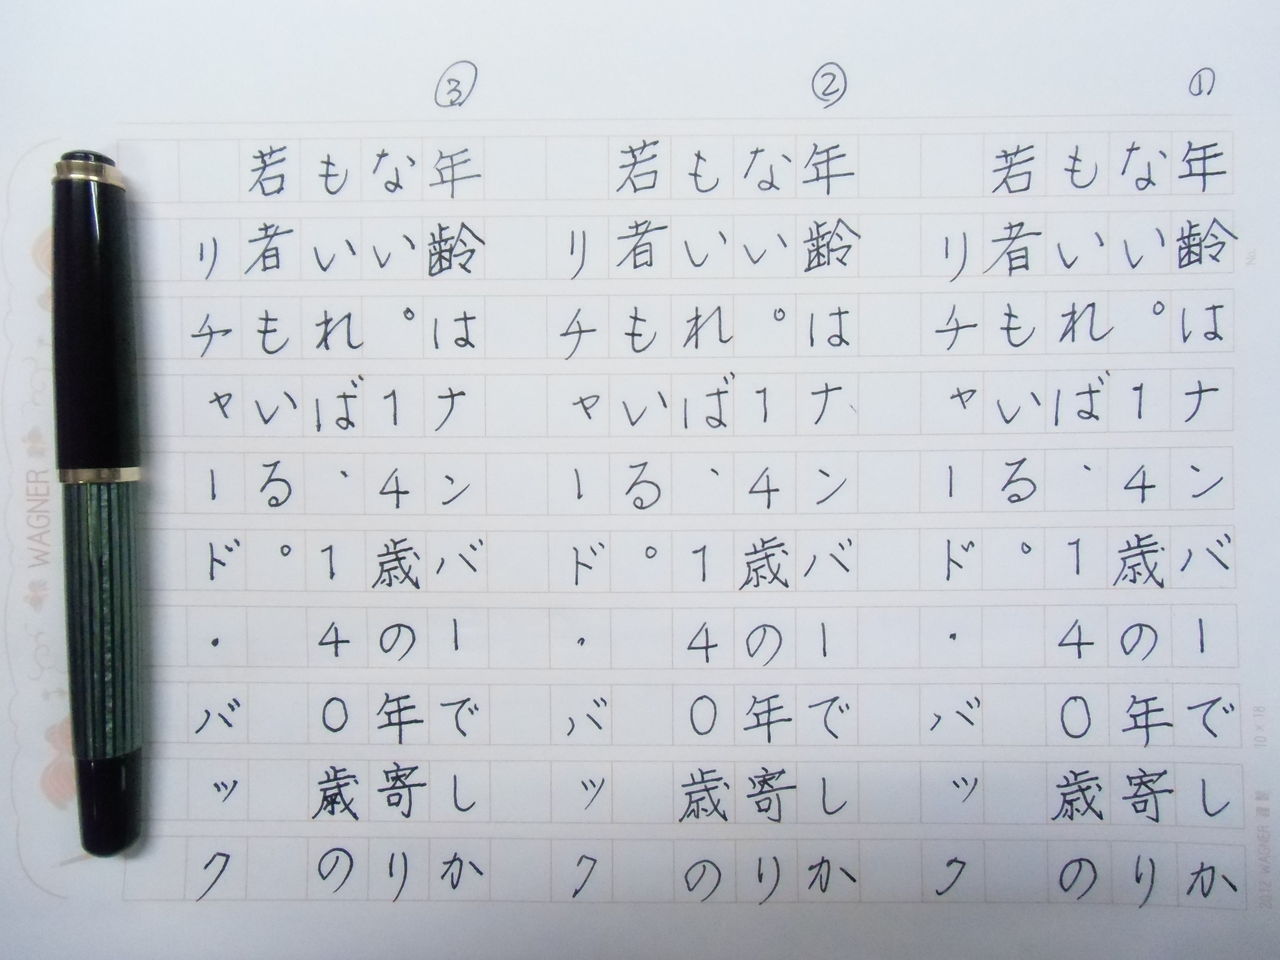 ①
年齢はナンバーでしか
ない。14歳の年寄り
もいれば、140歳の
若者もいる。
リチャード・バック
②
年齢はナンバーでしか
ない。14歳の年寄り
もいれば、140歳の
若者もいる。
リチャード・バック
③
年齢はナンバーでしか
ない。14歳の年寄り
もいれば、140歳の
若者もいる。
リチャード・バック
No.
10×18
2012 WAGNER 謹製
WAGNER